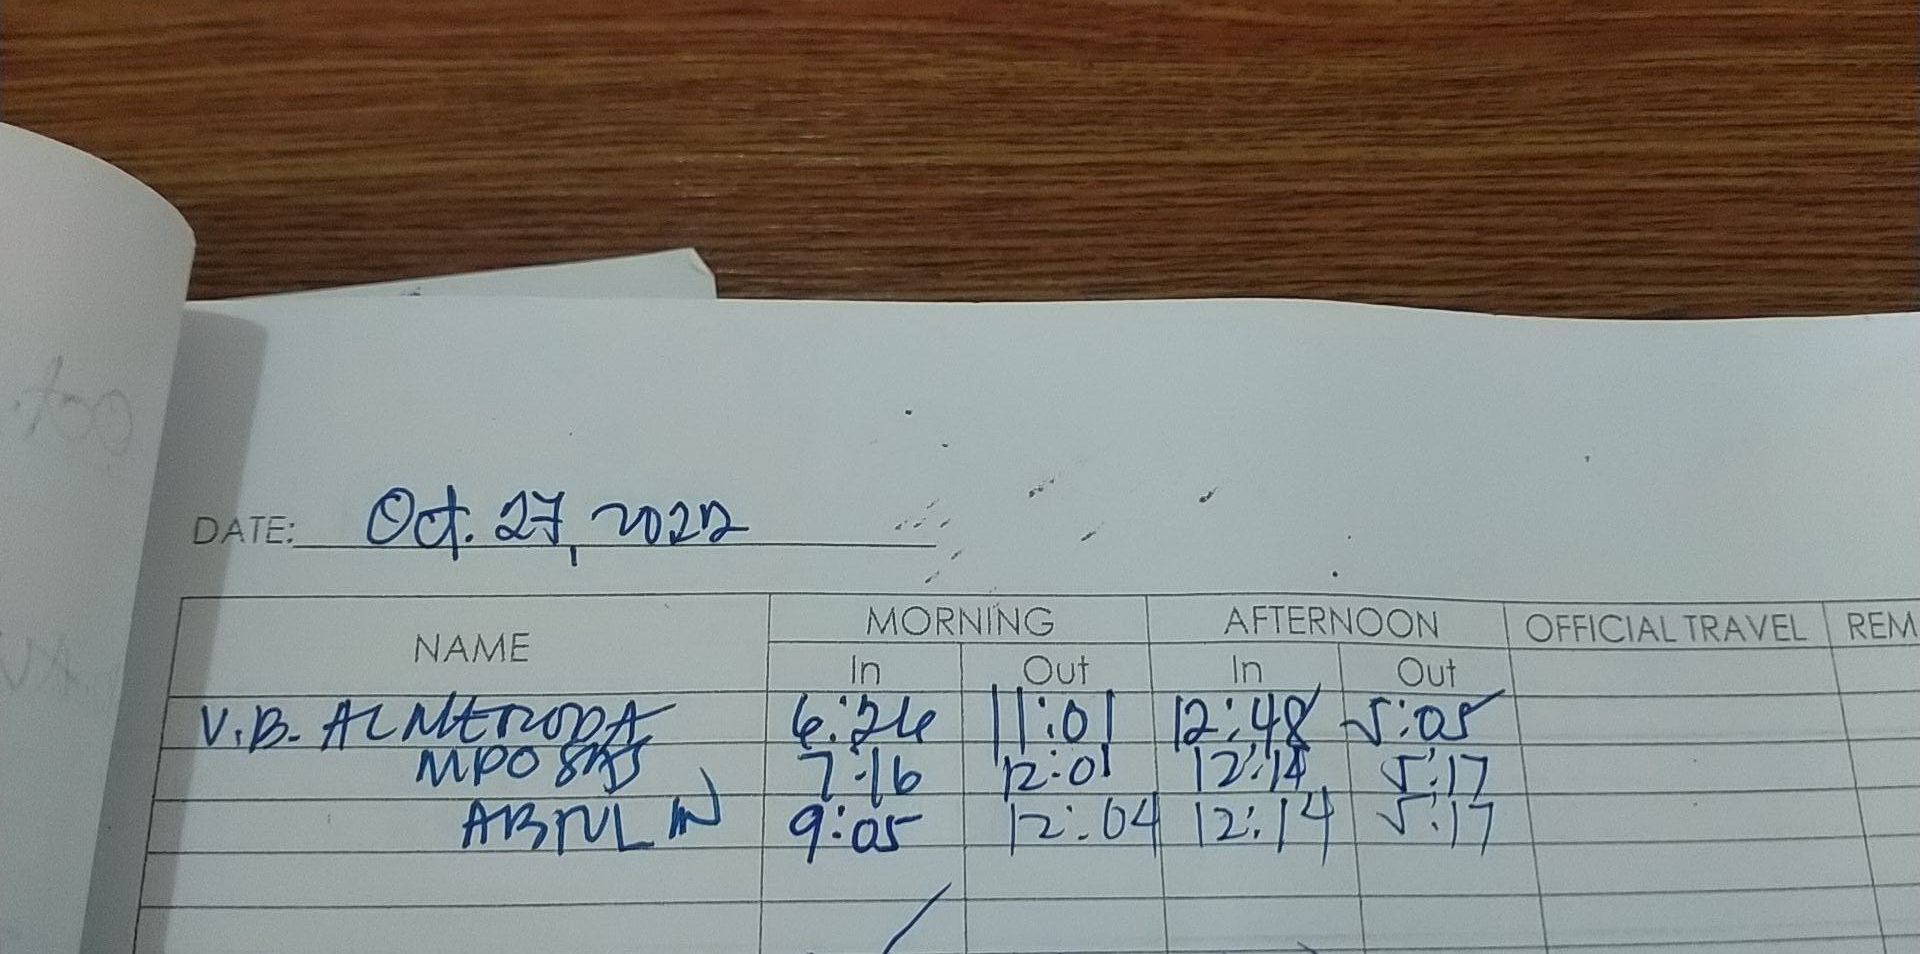 DATE: Oct. 27, 2022
NAME MORNING AFTERNOON OFFICIAL TRAVEL REM
In Out In Out
V.B. ALMERODA 6:26 11:01 12:48 5:05
MPO SAS 7:16 12:01 12:14 5:17
9:05 12:04 12:14 5:17